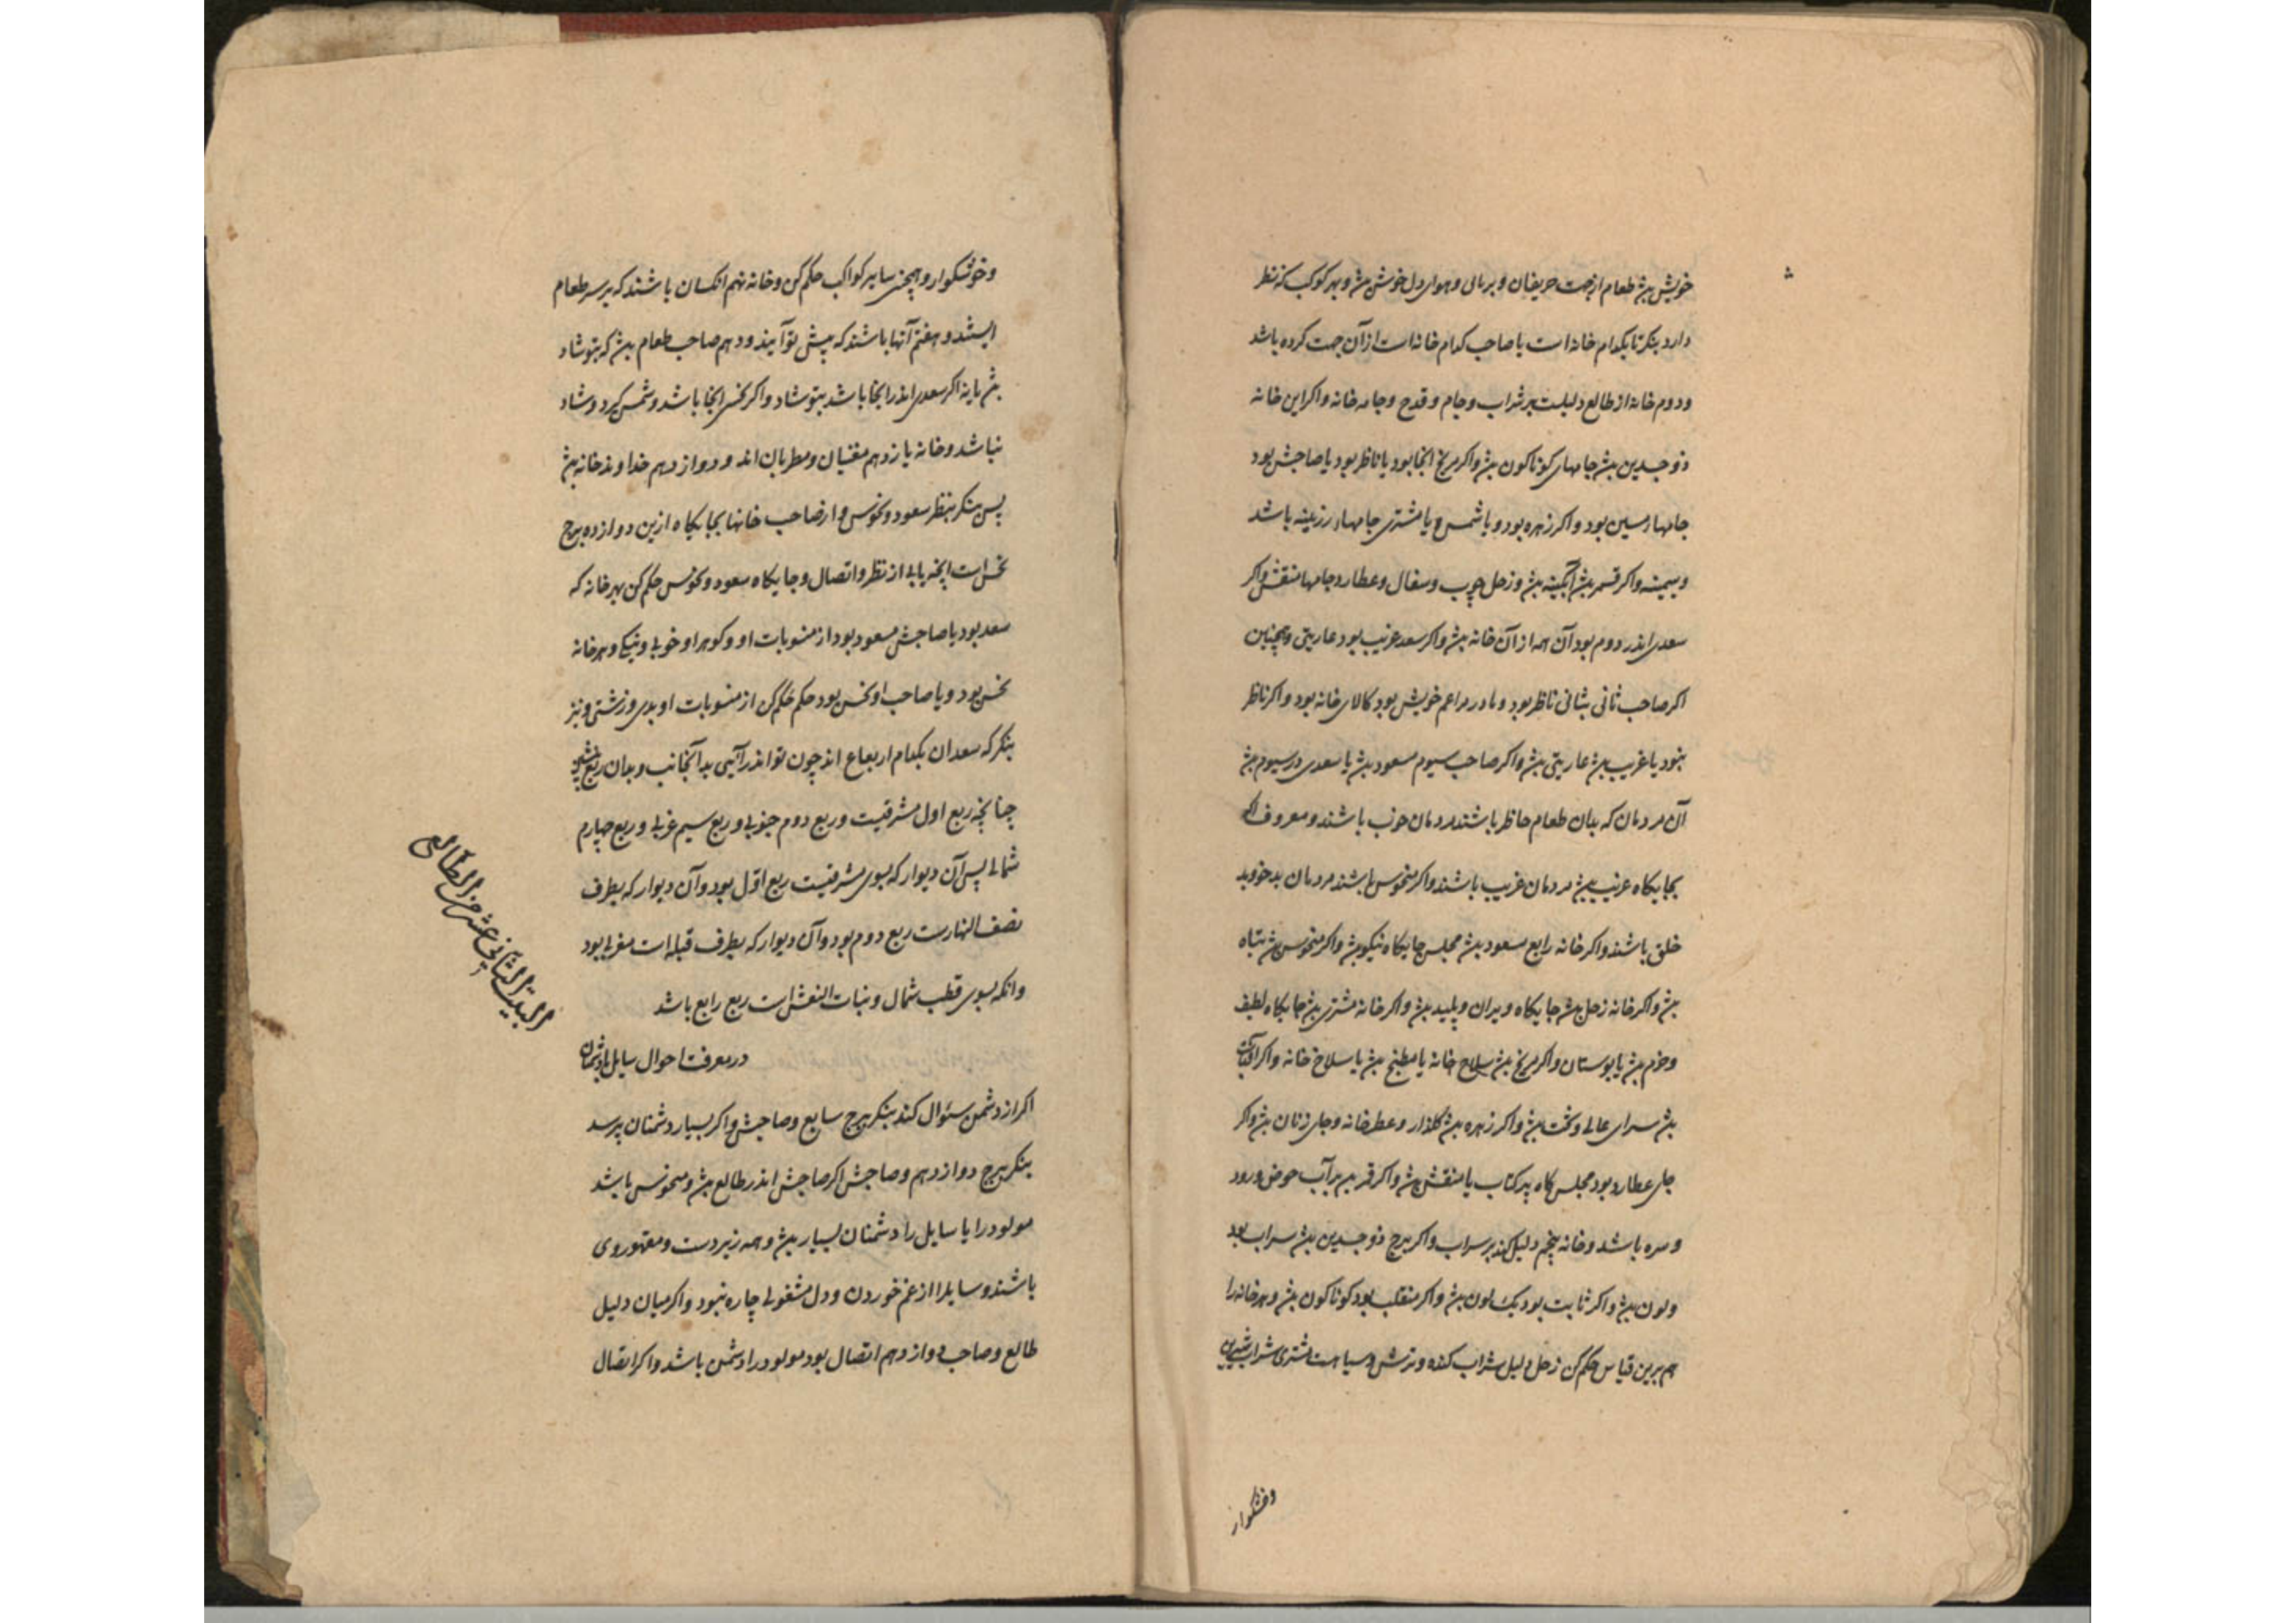 خویش بیند طعام از جهت حریفان و بریانی و هوای دل خوش بیند و بهر کوکب که نظر
دارد بنکر تا بکدام خانه است یا صاحب کدام خانه است از آن جهت کرده باشد
ودوم خانه از طالع دلیلست بر شراب و جام و قدح و جامه خانه و اکر این خانه
ذوجسدین بیند جامهای کوناکون بیند و اکر مریخ انجا بود یا ناظر بود یا صاحبش بود
جامهاء مسین بود و اکر زهره بود و یا شمس و یا مشتری جامهاء زرینه باشد
وسیمینه و اکر قمر بیند آبکینه بیند و زحل چوب و سفال و عطارد جامها منقش و اکر
سعدی اندر دوم بود آن همه از آن خانه بیند و اکر سعد غریب بود عاریتی و همچنین
اکر صاحب ثانی بثانی ناظر بود و مادر مراعم خویش بود کالای خانه بود و اکر ناظر
نبود یا غریب بیند عاریتی بیند و اکر صاحب سیوم مسعود بیند یا سعدی در سیوم بیند
آن مردمان که بدان طعام حاظر باشند مردمان خوب باشند و معروف اکر
بجایکاه غریب بیند مردمان غریب باشند و اکر منحوس باشند مردمان بدخو و بد
خلق باشند و اکر خانه رابع مسعود بیند مجلس جایکاه نیکو بیند و اکر منحوس بیند تباه
بیند و اکر خانه زحل بیند جایکاه ویران و پلید بیند و اکر خانه مشتری بیند جایکاه لطیف
وخرم بیند یا بوستان و اکر مریخ بیند سلاح خانه یا مطبخ بیند یا سلاخ خانه و اکر آفتاب
بیند سرای عالی و تخت بیند و اکر زهره بیند کلذار و عطرخانه و جای زنان بیند و اکر
جای عطارد بود مجلس کاه پر کتاب یا منقش بیند و اکر قمر بیند پر آب حوض و رود
و سره باشد و خانه پنجم دلیل کند بر سراب و اکر برج ذوجسدین بیند سراب بود
ولون بیند و اکر ثابت بود یک لون بیند و اکر منقلب بود کوناکون بیند و هر خانه را
هم برین قیاس حکم کن زحل دلیل شراب کنده و ترش و سیاهست مشتری شراب شیرین
وخوشکوار
وخوشکوار و همچنین سایر کواکب حکم کن و خانه نهم انکسان باشند که بر سر طعام
ایستند و هفتم آنها باشند که پیش تو آیند و دهم صاحب طعام بیند که بتو شاد
بیند یا نه اکر سعدی اندر انجا باشد بتو شاد و اکر نحس انجا باشد دشمن کیرد و شاد
نباشد و خانه یازدهم مغنیان و مطربان اند و دوازدهم خداوند خانه بیند
پس بنکر بنظر سعود و نحوس و از صاحب خانها بجایکاه ازین دوازده برج
نحس است انچه یابی از نظر و اتصال و جایکاه سعود و نحوس حکم کن بهر خانه که
سعد بود یا صاحبش مسعود بود از منسوبات او و کوهر او خوبی و نیکی و هر خانه
نحس بود و یا صاحب او نحس بود حکم حکم کن از منسوبات او بدی و زشتی و نیز
بنکر که سعدان بکدام ارباع اند چون تو اندر آیی بدآنجانب و بدان ربع نشین
چنانچه ربع اول مشرقیست و ربع دوم جنوبی و ربع سیم غربی و ربع چهارم
شمالی پس آن دیوار که بسوی مشرقیست ربع اول بود و آن دیوار که بطرف
نصف النهارست ربع دوم بود و آن دیوار که بطرف قبله است مغربی بود
وانکه بسوی قطب شمال و بنات النعش است ربع رابع باشد
البیت الثانی عشر من الطالع
در معرفت احوال سایل با دشمنان
اکر از دشمن سئوال کند بنکر ببرج سابع و صاحبش و اکر بسیار دشمنان پرسد
بنکر ببرج دوازدهم و صاحبش اکر صاحبش اندر طالع بیند و منحوس باشد
مولود را یا سایل را دشمنان بسیار بیند و همه زیردست و مقهور وی
باشند و سایلرا از غم خوردن و دل مشغولی چاره نبود و اکر میان دلیل
طالع و صاحب دوازدهم اتصال بود مولود را دشمن باشد و اکر اتصال